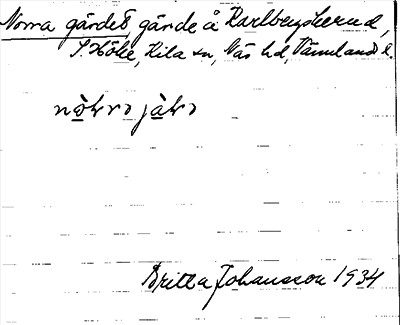 Norra gärdet, gärde å Karlbergskerud,
S. Höke, Kila sn, Näs hd, Värmlands l.
Britta Johansson 1934